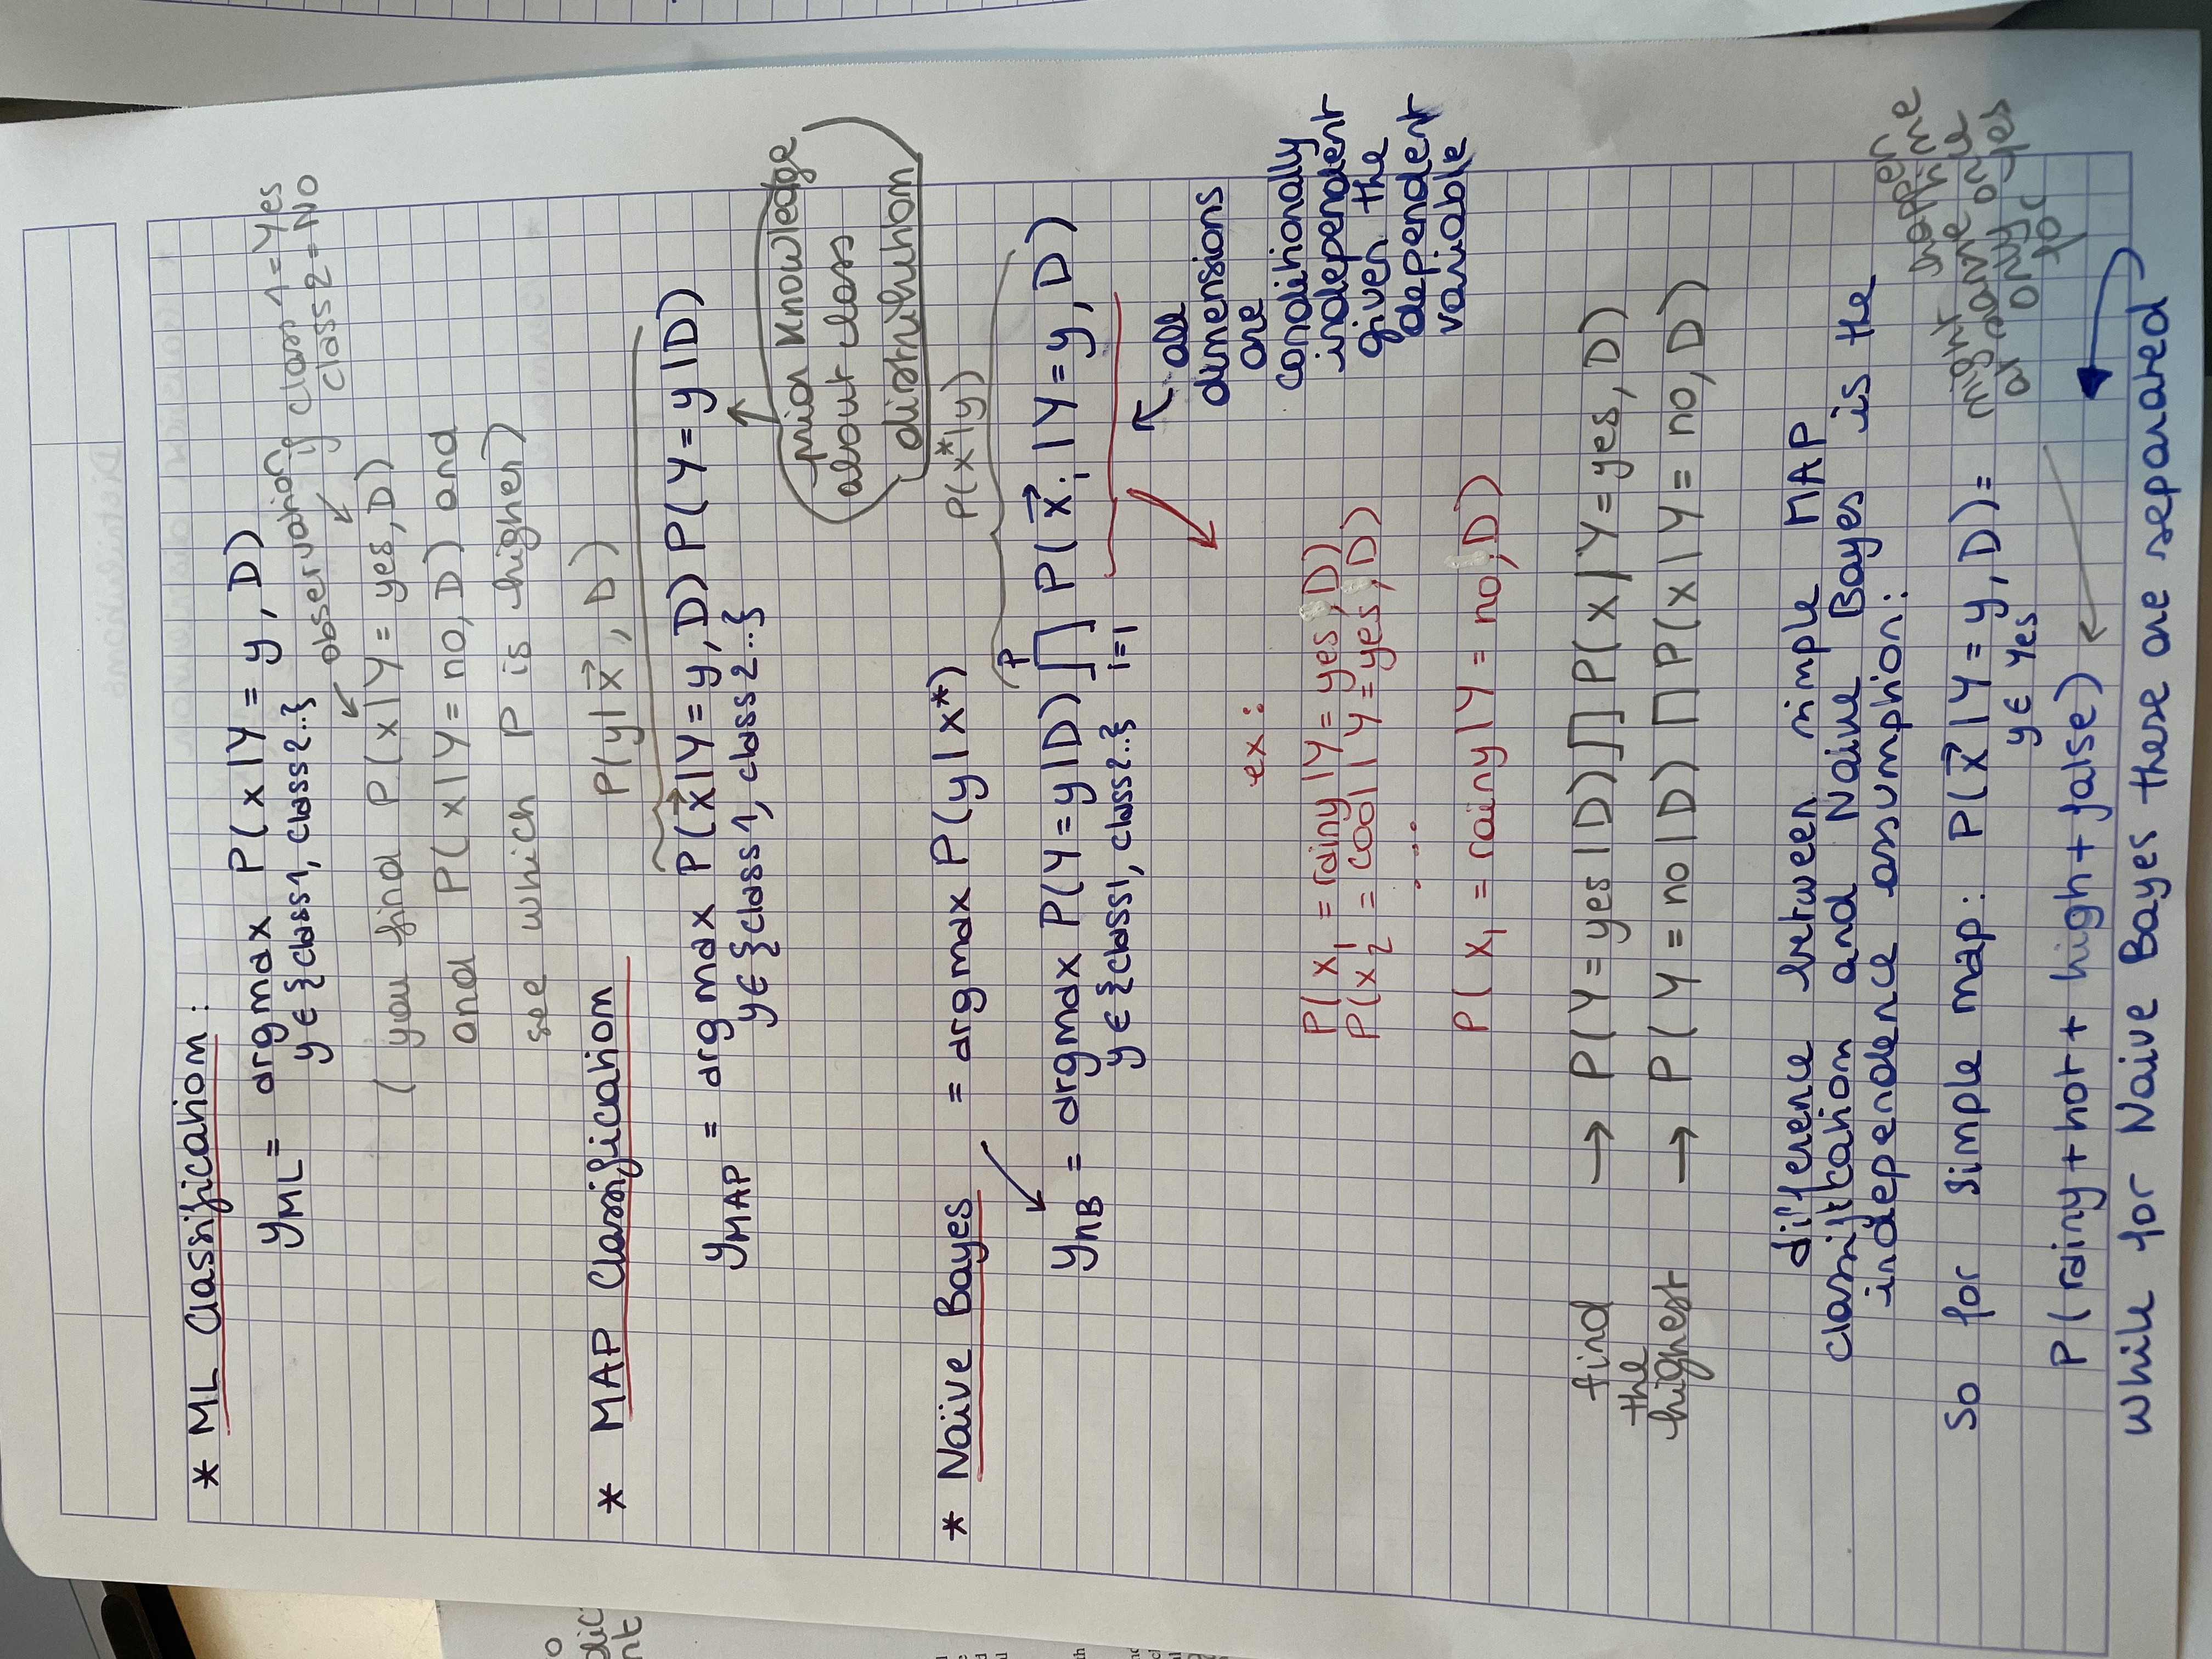 * ML Classification:
y_ML = argmax P(x|Y = y, D)
y ∈ {class1, class2..}
observation if class 1 = Yes
class 2 = No
( you find P(x|Y = yes, D)
and P(x|Y = no, D) and
see which P is higher)
* MAP Classification
P(y|x⃗, D)
y_MAP = argmax P(x⃗|Y=y, D) P(Y=y|D)
y ∈ {class 1, class 2..}
prior knowledge
about class
distribution
* Naïve Bayes = argmax P(y|x*)
P(x*|y)
y_nB = argmax P(Y=y|D) ∏ P(x⃗ᵢ|Y=y, D)
P
y ∈ {class1, class2..} i=1
all
dimensions
are
conditionally
independent
given the
dependent
variable
ex:
P(x₁ = rainy|Y= yes, D)
P(x₂ = cool|Y=yes, D)
...
P(x₁ = rainy|Y= no, D)
find → P(Y=yes|D) ∏ P(x|Y=yes, D)
the
highest → P(Y = no|D) ∏ P(x|Y= no, D)
difference between simple MAP
classification and Naive Bayes is the
independence assumption:
So for simple map: P(x⃗|Y=y, D)=
y ∈ Yes
might happen
at same time
only once
for yes
P(rainy + hot + high + false)
while for Naive Bayes these are separated